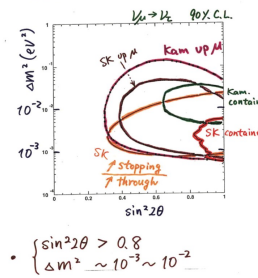 νμ → ντ 90% C.L.
Δm² (eV²)
1
10⁻¹
10⁻²
10⁻³
SK up μ
Kam up μ
Kam.
contain
SK contain
SK
↗ stopping
↗ through
0 0.2 0.4 0.6 0.8 1
sin²2θ
• { sin²2θ > 0.8
Δm² ~10⁻³ ~ 10⁻²